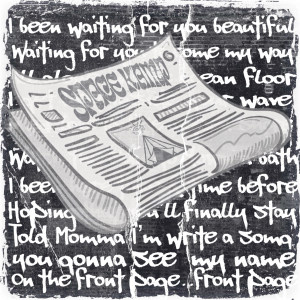 I been waiting for you beautiful
Waiting for you come my way
ean floor
wave
Wa
oath
I been time before
Hoping ll finally stay
Told Momma I'm write a song
you gonna see my name
on the front page...front page